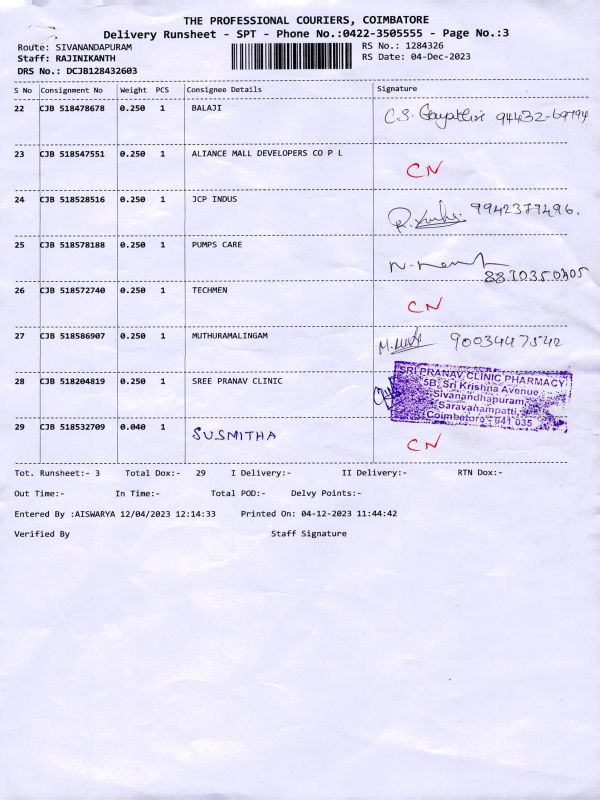 THE PROFESSIONAL COURIERS, COIMBATORE
Delivery Runsheet - SPT - Phone No.:0422-3505555 - Page No.:3
Route: SIVANANDAPURAM RS No.: 1284326
Staff: RAJINIKANTH RS Date: 04-Dec-2023
DRS No.: DCJB128432603
S No Consignment No Weight PCS Consignee Details Signature
22 CJB 518478678 0.250 1 BALAJI C.S. Gayathiri 94432-69794
23 CJB 518547551 0.250 1 ALIANCE MALL DEVELOPERS CO P L CN
24 CJB 518528516 0.250 1 JCP INDUS 9942379496.
25 CJB 518578188 0.250 1 PUMPS CARE 8870350405
26 CJB 518572740 0.250 1 TECHMEN CN
27 CJB 518586907 0.250 1 MUTHURAMALINGAM 9003447542
28 CJB 518204819 0.250 1 SREE PRANAV CLINIC
SRI PRANAV CLINIC PHARMACY
5B, Sri Krishna Avenue
Sivanandhapuram,
Saravanampatti,
Coimbatore - 641 035
29 CJB 518532709 0.040 1 SUSMITHA CN
Tot. Runsheet:- 3 Total Dox:- 29 I Delivery:- II Delivery:- RTN Dox:-
Out Time:- In Time:- Total POD:- Delvy Points:-
Entered By :AISWARYA 12/04/2023 12:14:33 Printed On: 04-12-2023 11:44:42
Verified By Staff Signature